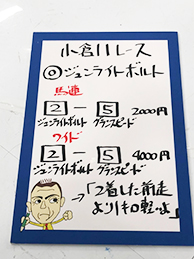 小倉11レース
◎ジュンライトボルト
馬連
2-5 2000円
ジュンライトボルト グランスピード
ワイド
2-5 4000円
ジュンライトボルト グランスピード
→「2着した前走
より1キロ軽いよ